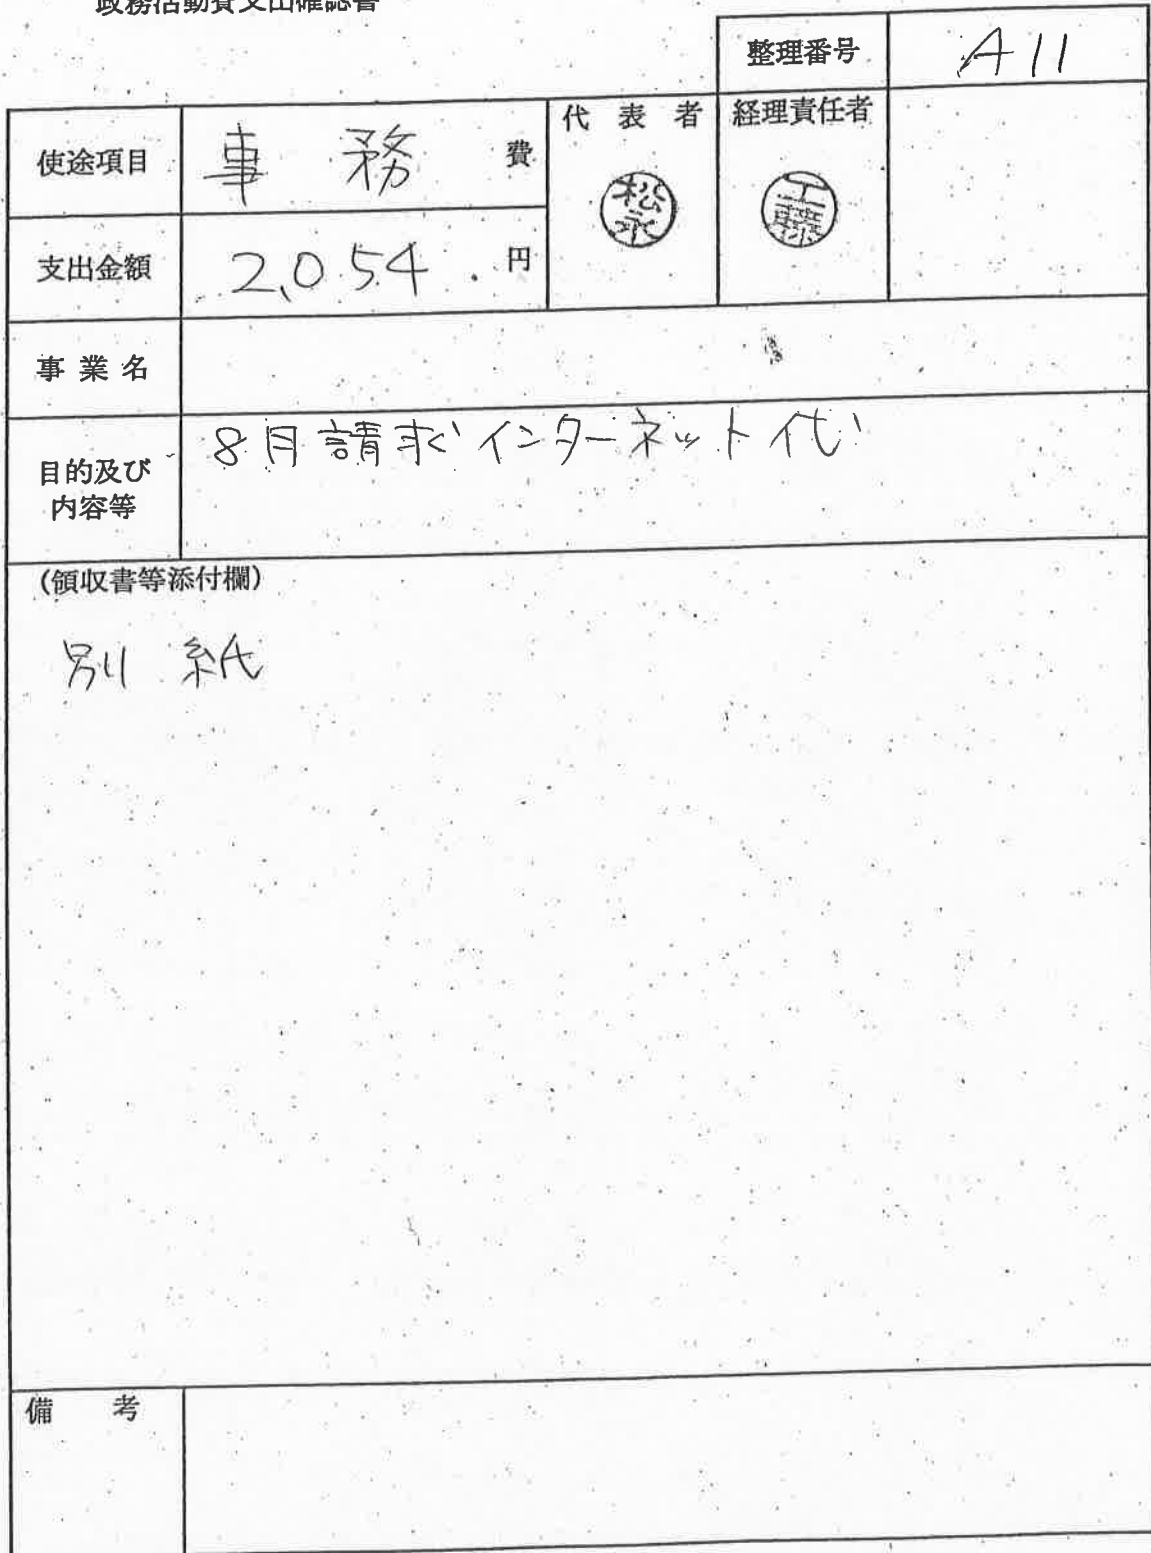 政務活動費支出確認書
整理番号 A11
使途項目 事務費
代表者 経理責任者
松永 工藤
支出金額 2,054円
事業名
目的及び内容等 8月請求インターネット代
(領収書等添付欄)
別紙
備考